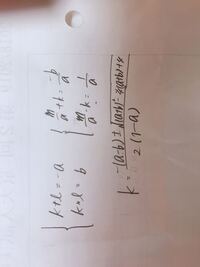 k+l=-a
k×l=b
m/a+k=-b/a
m/a·k=1/a
k=-(a-b)±√(a+b)²-4(a+b)+4
2(1-a)